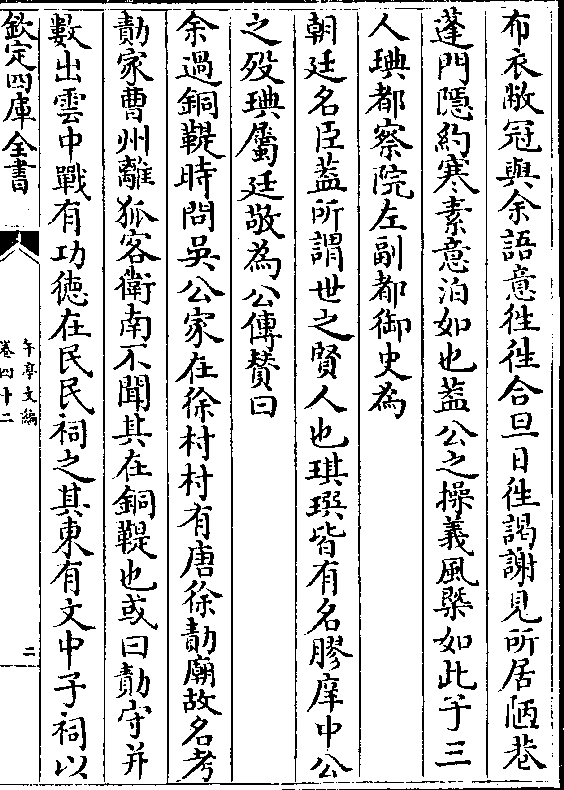 布衣敝冠與余語意徃徃合旦日徃謁謝見所居陋巷
蓬門隱約寒素意泊如也葢公之操義風槩如此子三
人琠都察院左副都御史為
朝廷名臣葢所謂世之賢人也琪璵皆有名膠庠中公
之歿琠屬廷敬為公傳贊曰
余過銅鞮時問吳公家在徐村村有唐徐勣廟故名考
勣家曹州離狐客衛南不聞其在銅鞮也或曰勣守并
數出雲中戰有功徳在民民祠之其東有文中子祠以
欽定四庫全書
午亭文編
卷四十二
二